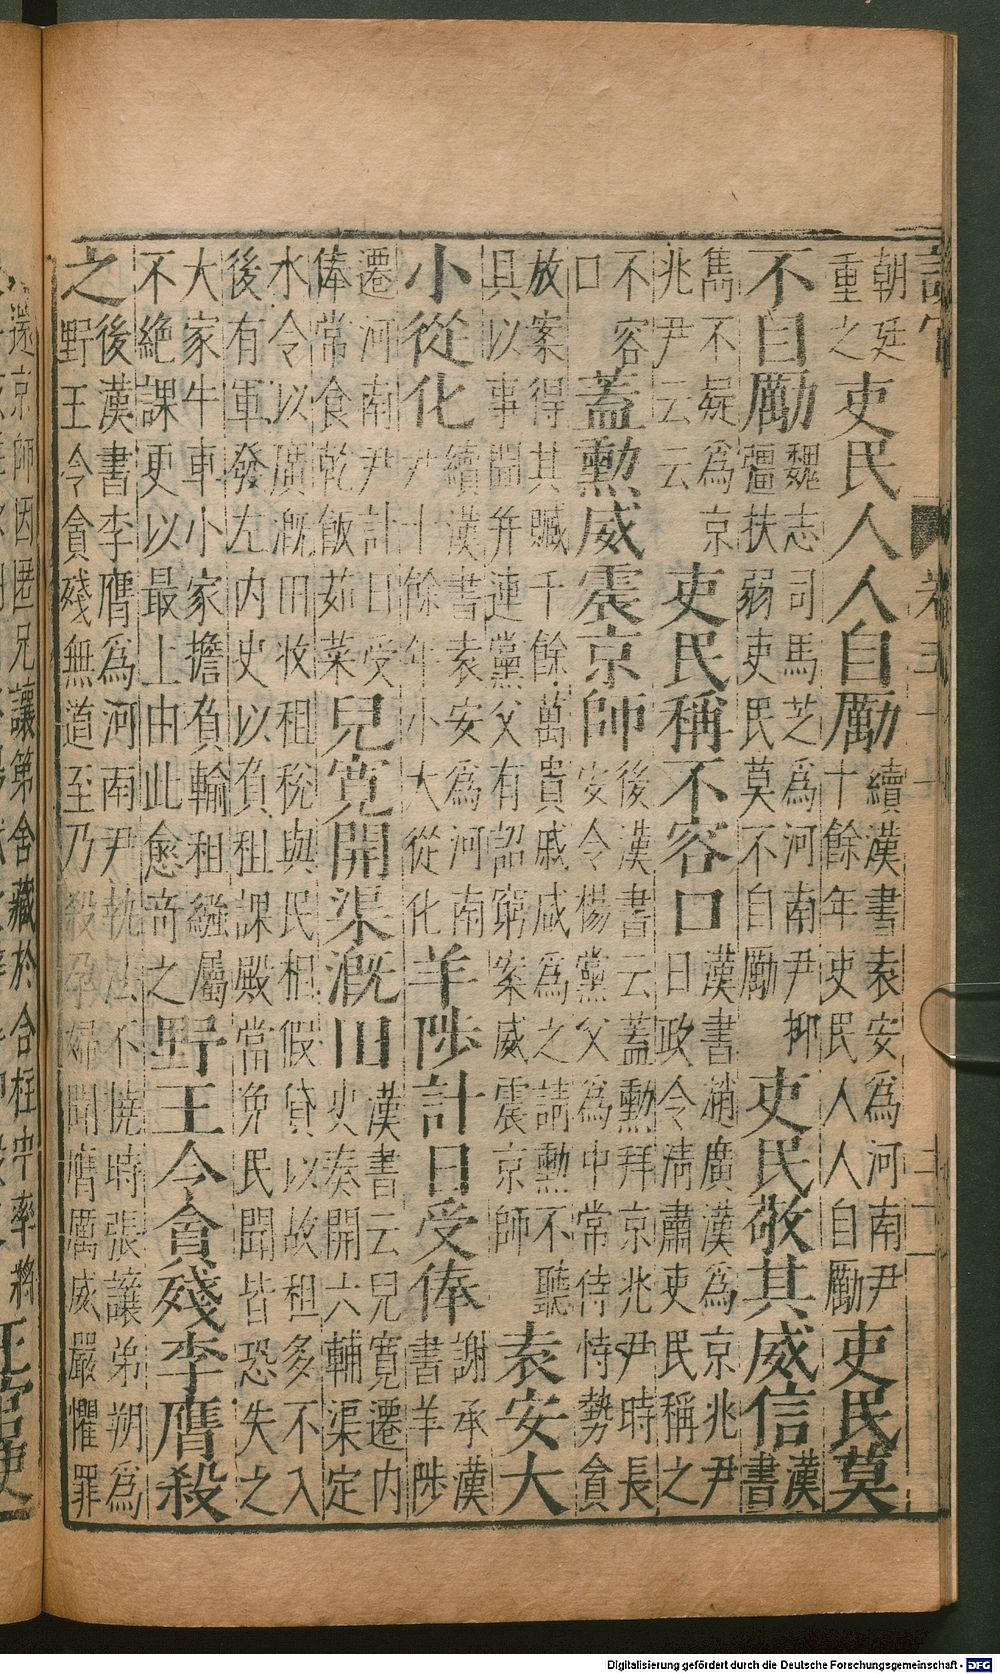 朝廷
重之
吏民人人自勵
續漢書袁安爲河南尹
十餘年吏民人人自勵
吏民莫
不自勵
魏志司馬芝爲河南尹抑
彊扶弱吏民莫不自勵
吏民敬其威信
漢
書
雋不疑爲京
兆尹云云
吏民稱不容口
漢書趙廣漢爲京兆尹
曰政令清肅吏民稱之
不容
口
蓋勳威震京師
後漢書云蓋勳拜京兆尹時長
安令楊黨父爲中常侍恃勢貪
放案得其贓千餘萬貴戚咸爲之請勳不聽
具以事聞并連黨父有詔窮案威震京師
袁安大
小從化
續漢書袁安爲河南
尹十餘年小大從化
羊陟計日受俸
謝承漢
書羊陟
遷河南尹計日受
俸常食乾飯茹菜
兒寬開渠溉田
漢書云兒寬遷内
史奏開六輔渠定
水令以廣溉田收租稅與民相假貸以故租多不入
後有軍發左内史以負租課殿當免民聞皆恐失之
大家牛車小家擔負輸租繈屬
不絶課更以最上由此愈奇之
野王令貪殘李膺殺
之
後漢書李膺爲河南尹執法不撓時張讓弟朔爲
野王令貪殘無道至乃殺孕婦聞膺厲威嚴懼罪
還京師因匿兄讓第舍藏於合柱中率將
Digitalisierung gefördert durch die Deutsche Forschungsgemeinschaft - DFG